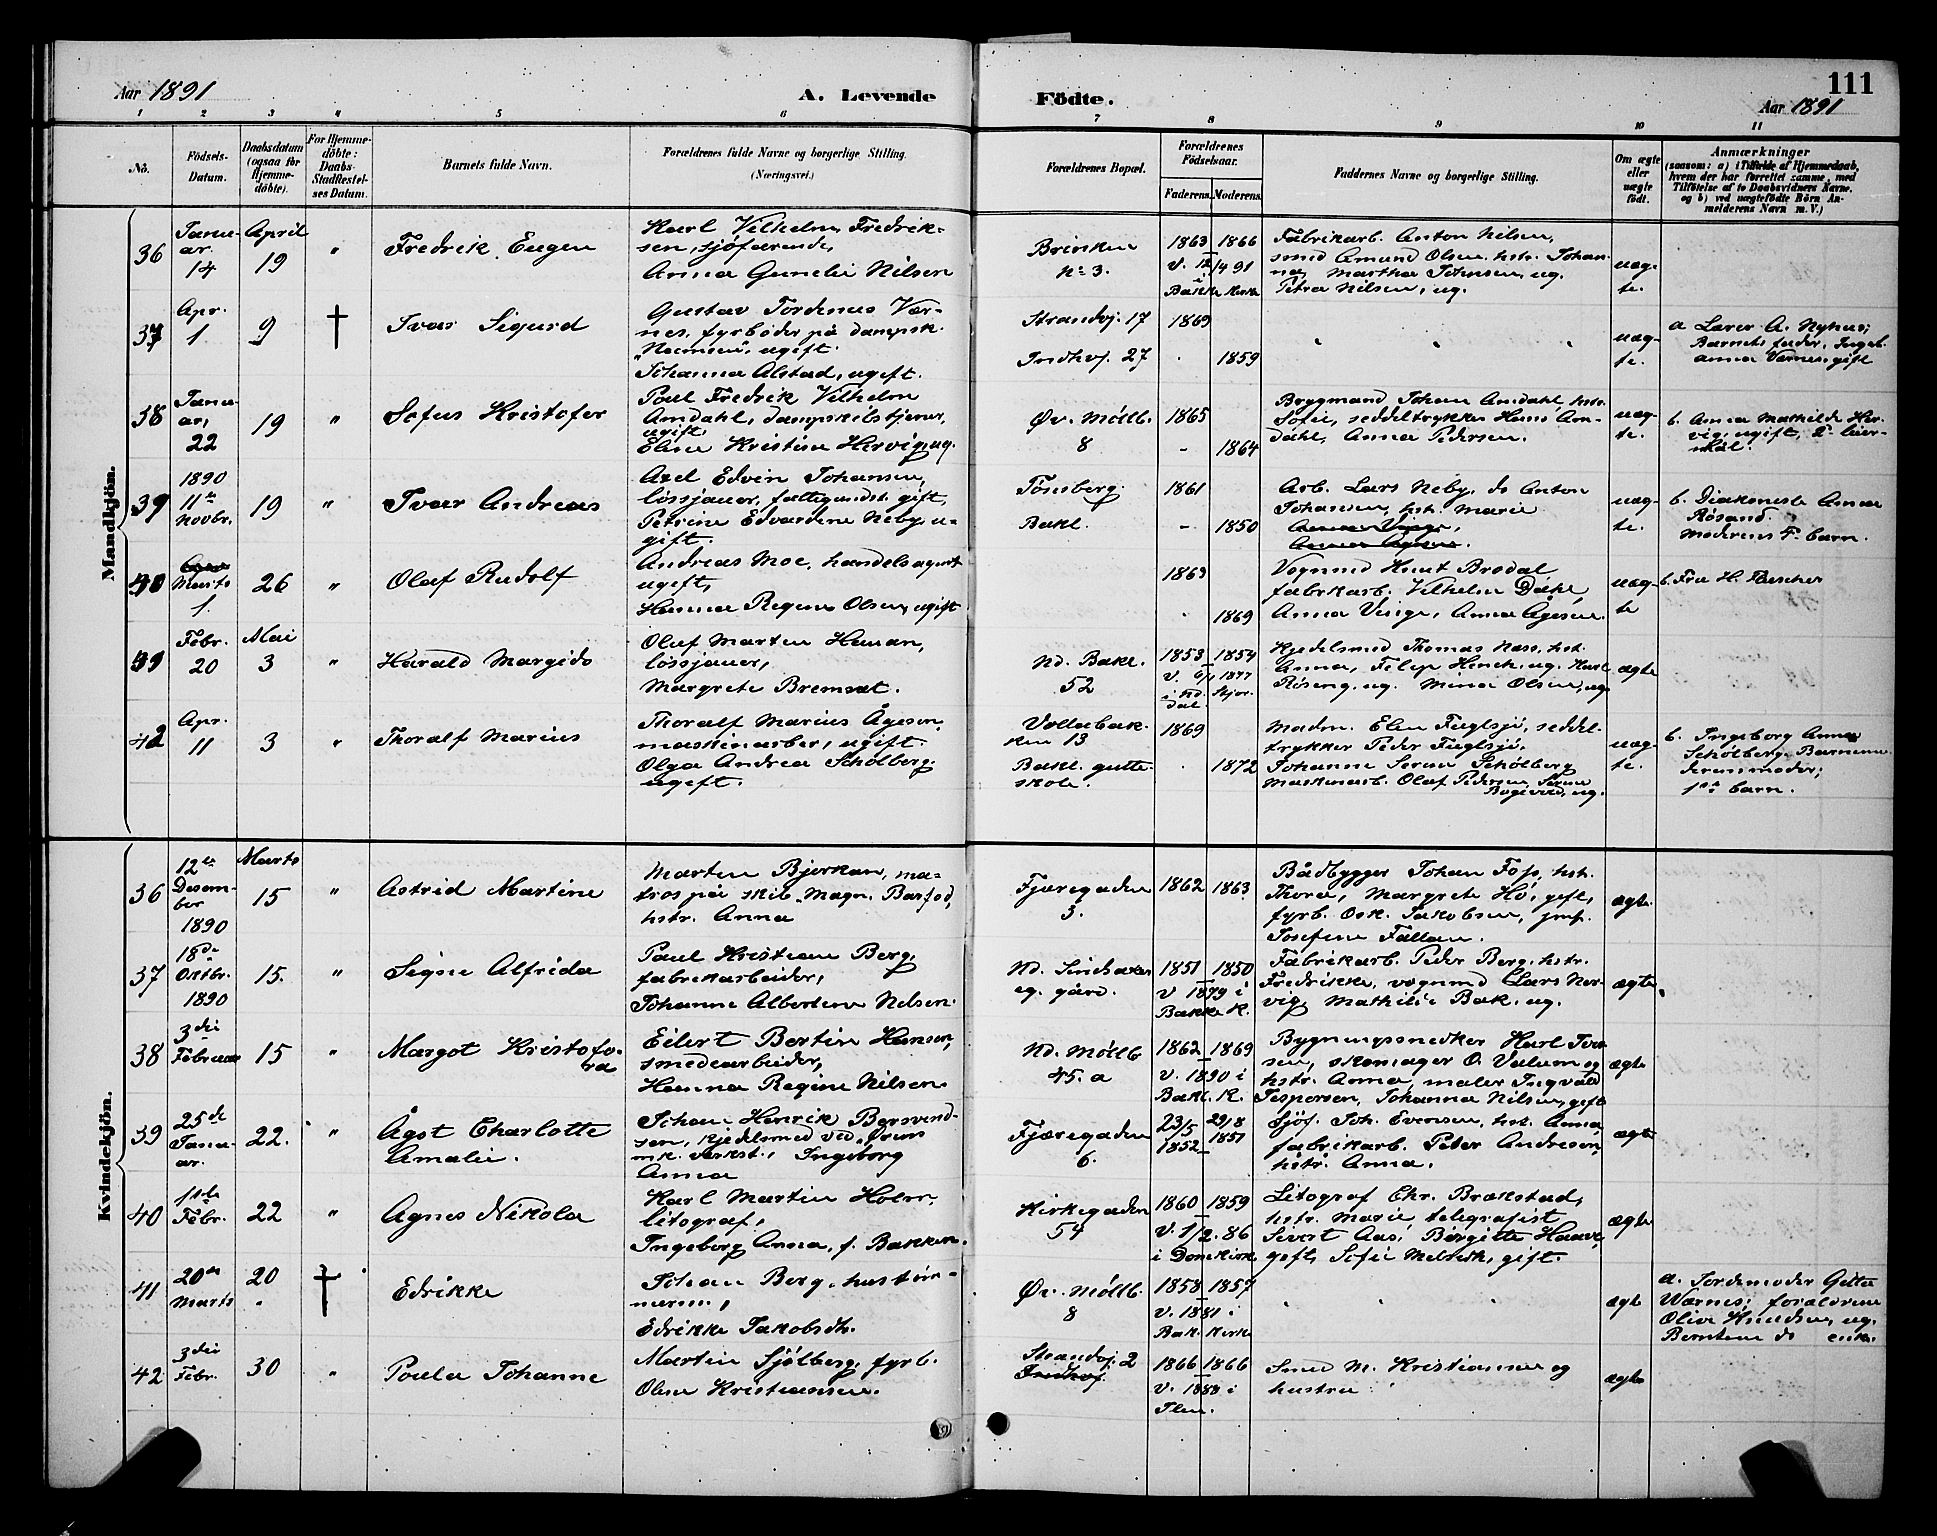 Aar 1891
A. Levende
Födte.
111
Aar 1891
1 2 3 4 5 6 7 8 9 10 11
No.
Födsels-
Datum.
Daabsdatum
(ogsaa for
Hjemme-
döbte).
For Hjemme-
döbte:
Daabs-
Stadfæstel-
ses Datum.
Barnets fulde Navn.
Forældrenes fulde Navne og borgerlige Stilling.
(Næringsvei.)
Forældrenes Bopæl.
Forældrenes
Födselsaar.
Faderens. Moderens.
Faddernes Navne og borgerlige Stilling.
Om ægte
eller
uægte
født.
Anmærkninger
(saasom: a) i Tilfælde af Hjemmedaab,
hvem der har forrettet samme, med
Tilföielse af to Daabsvidners Navne.
og b) ved uægtefödte Börn An-
melderens Navn m. V.)
Mandkjön.
36
Janu-
ar.
14
April
19
"
Fredrik Eugen
Karl Vilhelm Fredrik-
sen, sjöfarende,
Anna Gunelie Nilsen
Brinken
No 3.
1863 1866
V. 12/4 91
i
Bakke Kirke
Fabrikarb. Anton Nilsen,
smed Amund Olsen, hstr. Johan-
na, Martha Johnsen, ug.
Petra Nilsen, ug.
uæg-
te.
37
Apr.
1
9
†
Ivar Sigurd
Gustav Tordenus Vær-
nes, fyrböder på dampsk.
ugift.
Johanna Alstad, ugift.
Strandvj. 17
Indhvj. 27
1869
1859
uæg-
te.
a Lærer A. Nyhus;
Barnets fader, Ingeb.
anna Værnes, gift
38
Janu-
ar,
22
19
"
Sofus Kristofer
Poul Fredrik Vilhelm
Amdahl, dampskibstjener,
ugift,
Eline Kristine Hervig, ug.
Øv. Möllb.
8
1865
1864
Brygmand Johan Amdahl, hstr.
Sofie, seddeltrykker Hans Am-
dahl, Anna Pedersen.
uæg-
te.
b. Anna Mathilde Her-
vig, ugift, 2.
39
1890
11te
Novbr.
19
"
Ivar Andreas
Axel Edvin Johansen,
løssjauer, fattigundst. gift,
Petrine Edvardine Neby, u-
gift.
Tönsberg.
Bakl.
1861
1850
Arb. Lars Neby, do Anton
Johansen, hst. Marie
Anna Vinge,
Anna Ågesen.
uæg-
te.
b. Diakonesse Anna
Røsand.
Moderens 4. barn.
40
Marts
1.
26
"
Olaf Rudolf
Andreas Moe, handelsagent
ugift,
Hanna Regine Olsen, ugift
1863
1869
Vognmd Knut Brodal
fabrikarb. Vilhelm Dahl,
Anna Vinge, Anna Ågesen.
uæg-
te
b. Fru H. Fischer
41
Febr.
20
Mai
3
"
Harald Margido
Olaf Martin Hanan,
løssjauer,
Margrete Bremset.
Nd. Bakl.
52
1853 1854
V. 6/1 1877
Kjedelsmed Thomas Næss, hst.
Anna, Filip Hinch, ug. Karl
Röseng, ug. Mina Olsen, ug.
ægte
42
Apr.
11
3
"
Thoralf Marius
Thoralf Marius Ågesen,
maskinarber, ugift.
Olga Andrea Schölberg,
ugift.
Vollabak-
ken 13
Bakl. gutte-
skole.
1869
1872
Madm. Elen Fuglsjö, seddel-
trykker Peder Fuglsjö,
Johanne Serine Schölberg
Maskinarb. Olaf Pedersen, Serine
ug.
uæg-
te.
b. Ingeborg Anna
Schölberg, Barnemo-
derens moder;
1ste barn.
Kvindekjön.
36
12te
Desem-
ber
1890
Marts
15
"
Astrid Martine
Marten Bjerkan, ma-
tros på skib „Magn. Barfod,
hstr. Anna
Fjæregaden
3.
1862 1863
Bådbygger Johan Foss, hst.
Thora, Margrete Hö, gift,
fyrb. Osk. Jakobsen, jmf.
Josefine Fallan.
ægte.
37
18de
Oktbr.
1890
15.
"
Signe Alfrida
Paul Kristian Berg,
fabrikarbeider,
Johanne Albertine Nilsen.
Nd. Sindsaker
eg. gård.
1851 1850
V 1879 i
Bakke K.
Fabrikarb. Peder Berg, hstr.
Fredrikke, vognmd Lars Nor-
vig, Mathilde Bak, ug.
ægte
38
3die
Februar
15
"
Margot Kristofo-
ra
Eilert Bertin Hansen,
smedearbeider,
Hanna Regine Nilsen.
Nd. Möllb
45. a
1862 1869
V. 1890 i
Bakl. K.
Bygningssnedker Karl Iver-
sen, skomager O. Valum og
hstr. Anna, maler Ingvald
Jespersen, Johanna Nilsen, gift
ægte
39
25de
Janu-
ar.
22.
"
Ågot Charlotte
Amalie.
Johan Henrik Bersvend-
sen, kjedelsmed ved „Trons
mk. værkst., Ingeborg
Anna
Fjæregaden
6.
23/5 29/8
1852 1851
Sjöf. Joh. Evensen, hst. Anna,
fabrikarb. Peter Andresen,
hstr. Anna.
ægte
40
1ste
Febr.
22
"
Agnes Nikola
Karl Martin Holm,
litograf,
Ingeborg Anna, f. Bakken.
Kirkegaden
54
1860 1859
V. 1/2. 86
i Domkirk.
Litograf Chr. Brækstad,
hstr. Marie, telegrafist
Sivert Aas, Birgitte Haave,
gift, Sofie Melvik, gift.
ægte
41
20de
Marts
20
†
Edrikke
Johan Berg, hustöm-
merm.,
Edrikke Jakobsdtr.
Öv. Möllb.
8
1858 1857
V. 1881 i
Bak. Kirke
ægte
a. Jordemoder Gitta
Wærnes; forældrene
Olive Knudsen, ug.
Berntine do enke.
42
3die
Febr.
30
"
Paula Johanne
Martin Sjölberg, fyrb.
Oline Kristiansen.
Strandvj. 2
1866 1866
V. 1889 i
Ilen.
Smed M. Kristiansen og
hustru
ægte